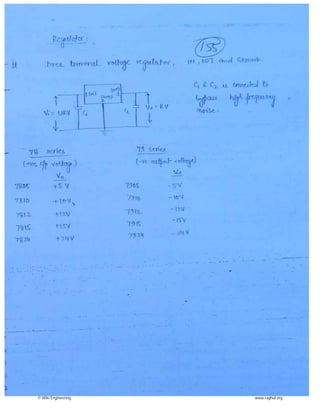 Regulator:
155
It three terminal voltage regulator, IN, OUT and Ground.
C₁ & C₂ is connected to
bypass high frequency
noise.
Vi = URV
C₁
C₂
Vo = RV
78 series
79 series
(+ve o/p voltage)
(-ve output voltage)
Vo
Vo
7805 +5 V
7905 -5V
7810 +10V
7910 -10V
7812 +12V
7912 -12V
7815 +15V
7915 -15V
7824 +24V
7924 -24V
© Wiki Engineering
www.raghul.org